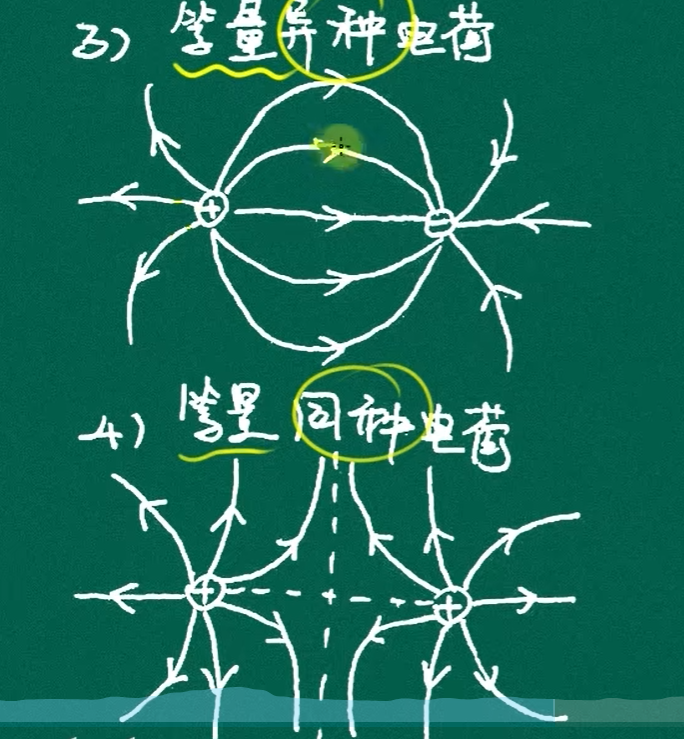 3) 等量异种电荷
+
-
4) 等量同种电荷
+
+